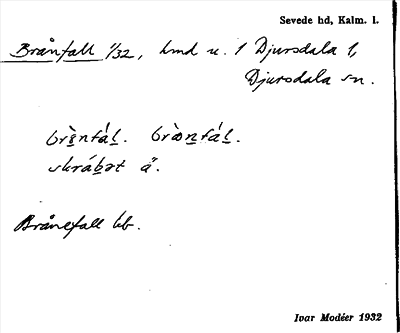 Sevede hd, Kalm. l.
Brånfall 1/32, hmd u. 1 Djursdala 1,
Djursdala sn.
skrábet å.
Brånefall bb.
Ivar Modéer 1932